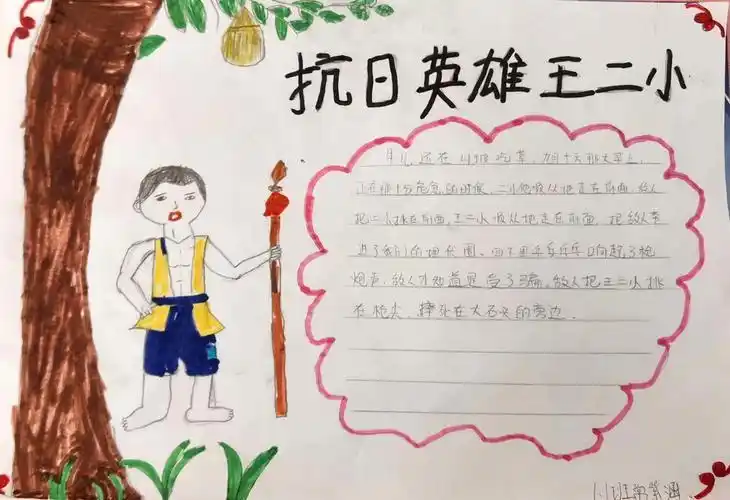 抗日英雄王二小
牛儿还在山坡吃草,
正在那十分危急的时候,二小他顺从地走在前面,敌人
把二小挑在前面,王二小顺从地走在前面,把敌人带
进了我们的埋伏圈、四下里乒乒乓乓响起了枪
炮声,敌人才知道是受了骗,敌人把王二小挑
在枪尖,摔死在大石头的旁边.